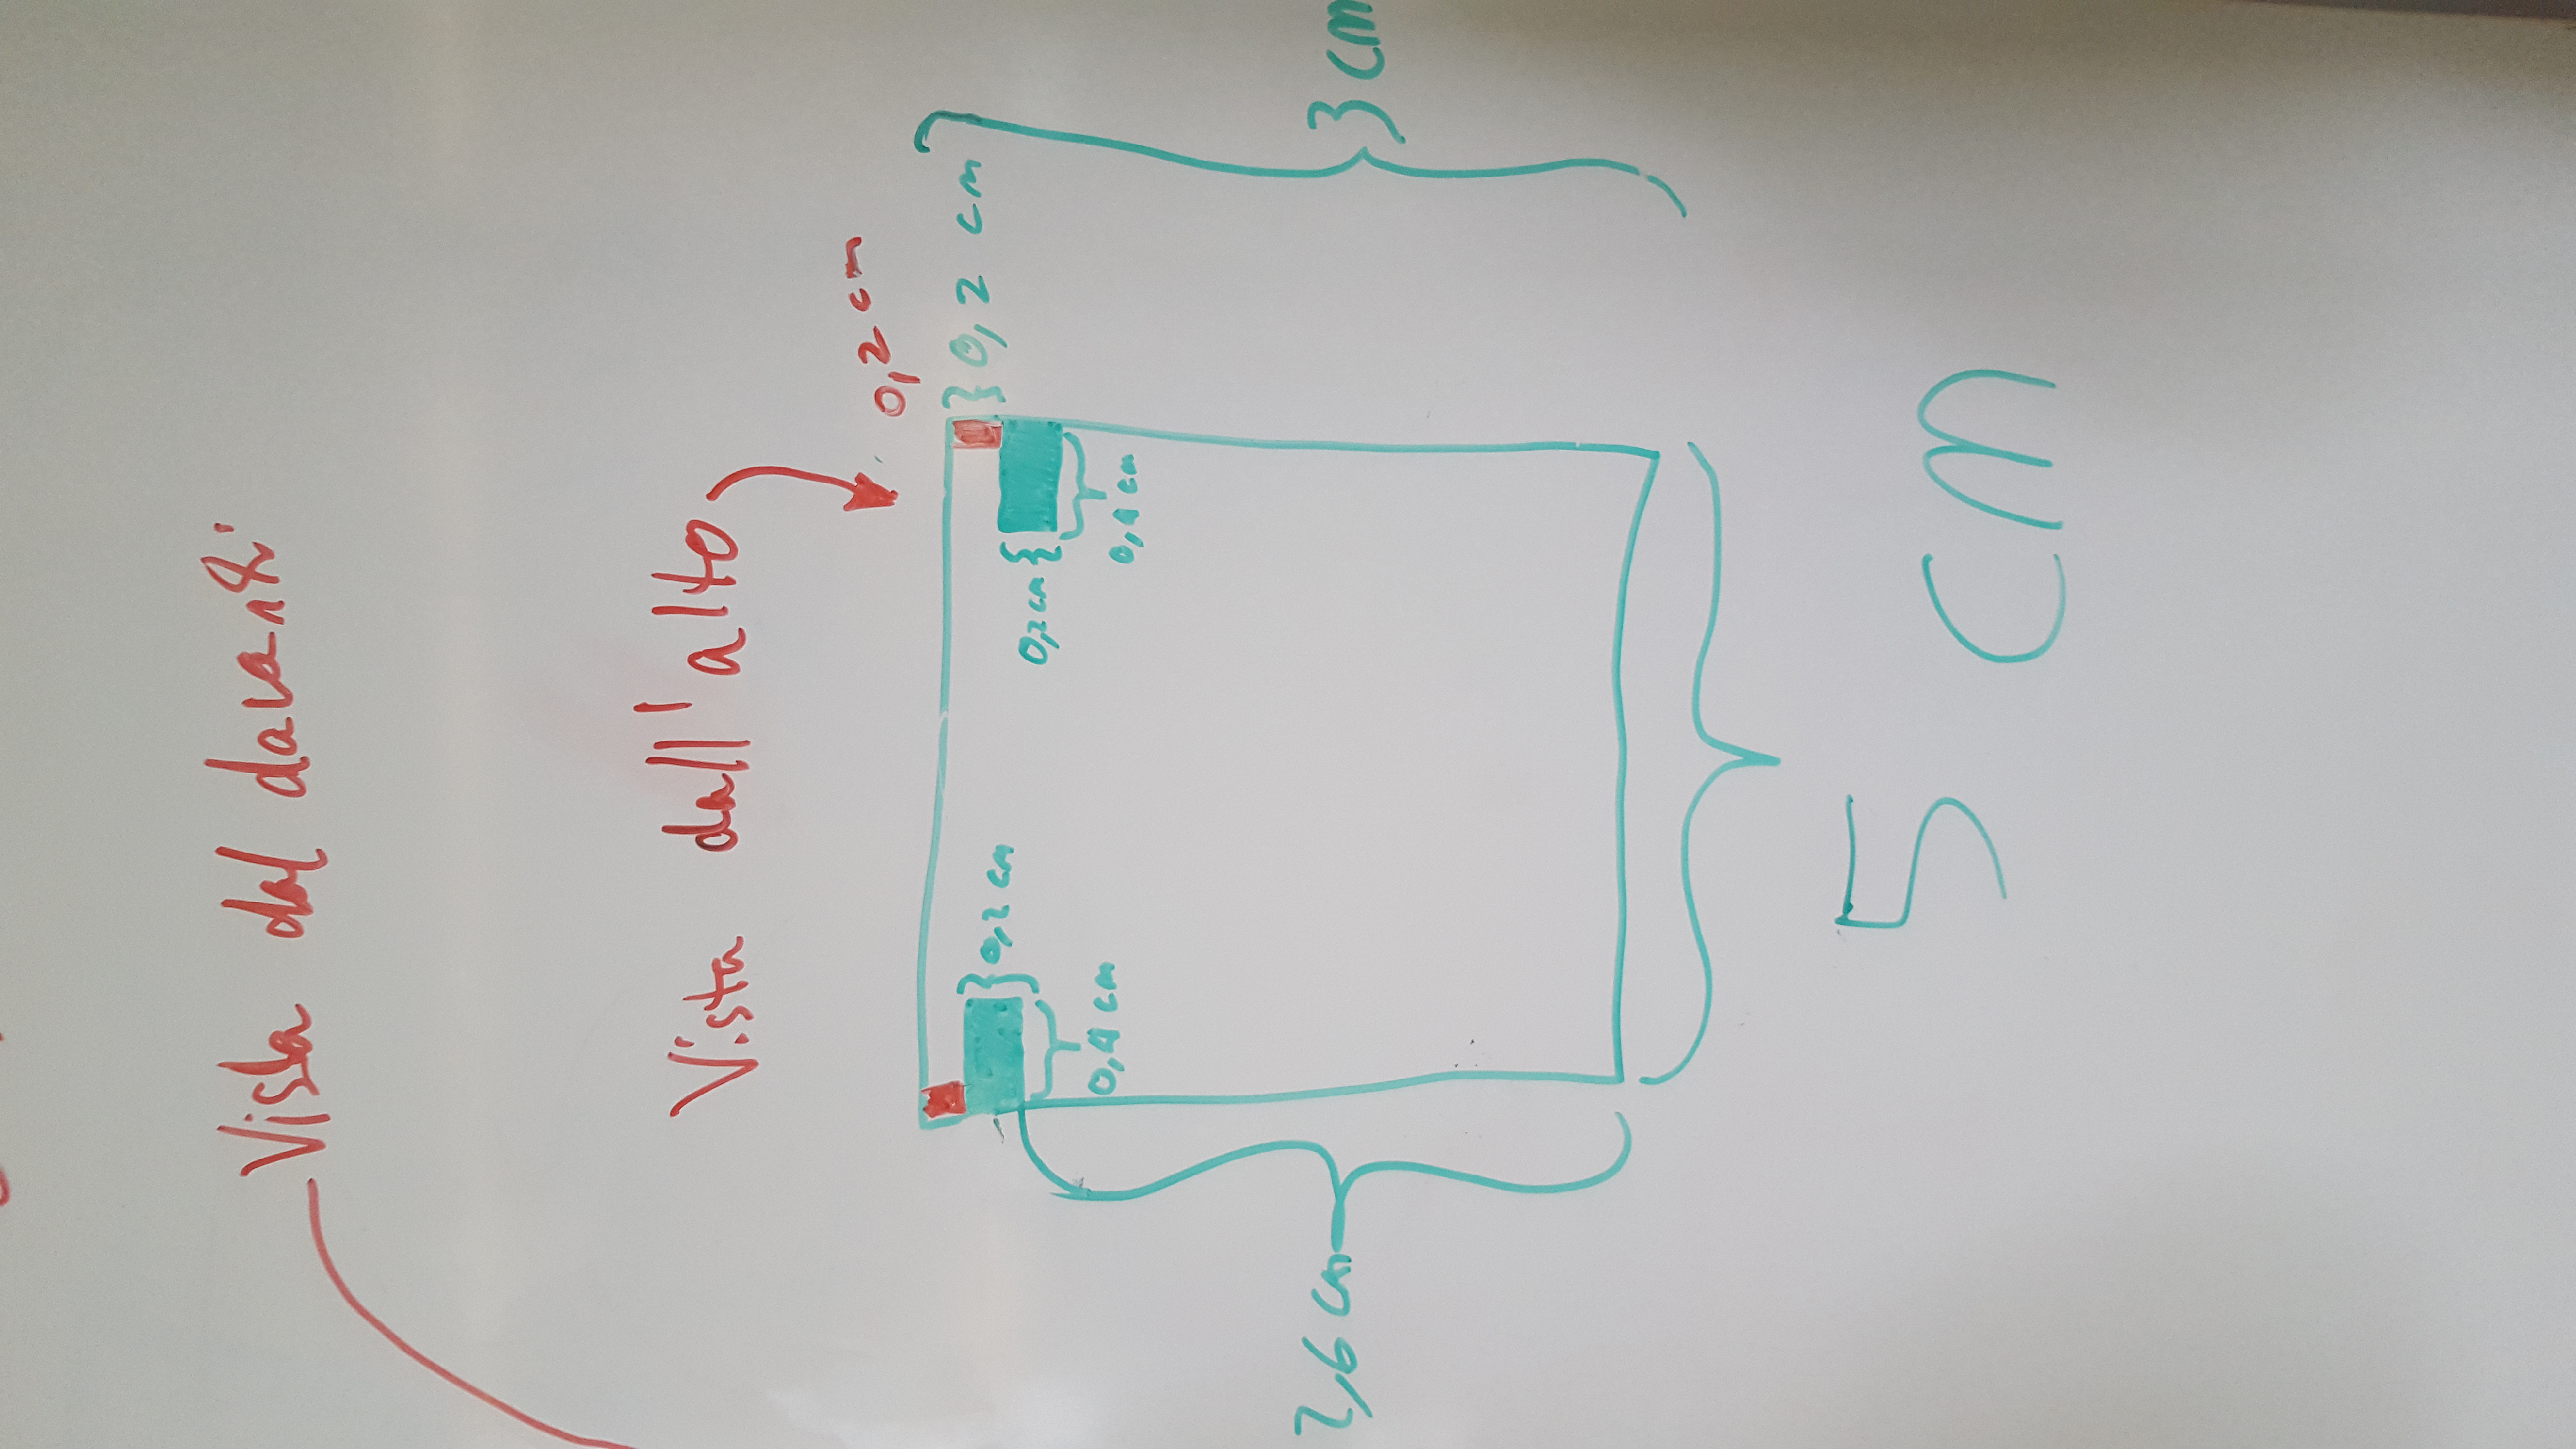 Vista dal davanti
Vista dall'alto
0,2 cm
0,2 cm
0,2 cm
0,2 cm
0,4 cm
0,4 cm
2,6 cm
3 cm
5 cm